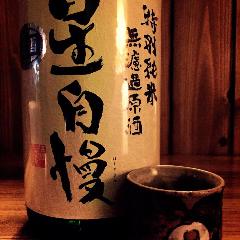 特別純米
無濾過原酒
星自慢